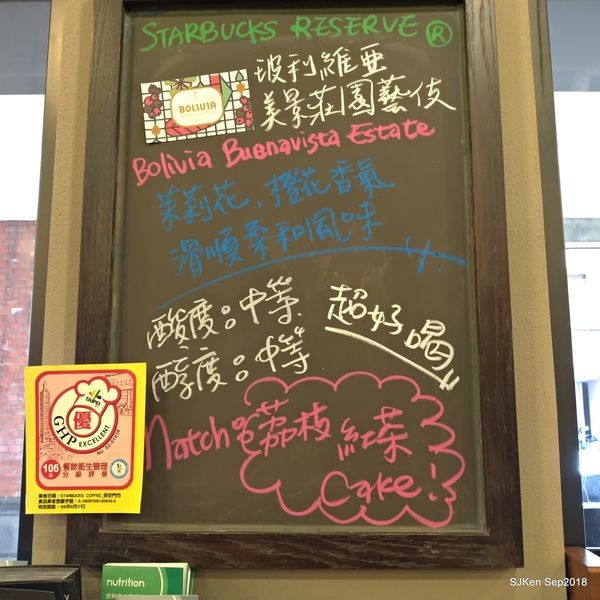 STARBUCKS RESERVE ®
BOLIVIA
玻利維亞
美景莊園藝伎
Bolivia Buenavista Estate
茉莉花、橙花香氣
滑順柔和風味
酸度:中等
醇度:中等
超好喝!!
match 荔枝紅茶
Cake!
TAIPEI
優
GHP EXCELLENT
106
餐飲衛生管理
分級評核
業者名稱:STARBUCKS COFFEE_保安門市
nutrition
SJKen Sep2018